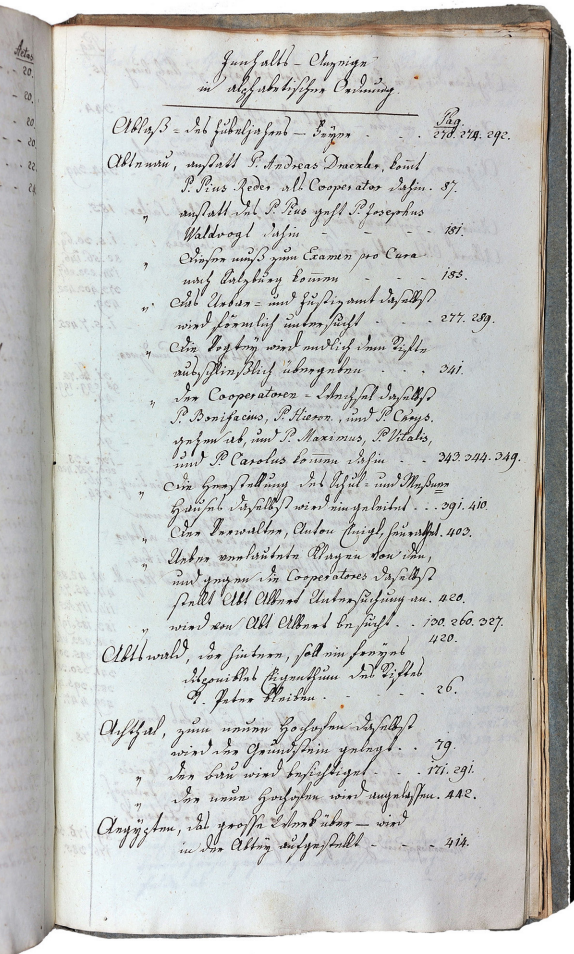 Actas
20.
20.
20.
20.
22.
24.
Innhalts-Anzeige
in alphabetischer Ordnung.
Pag.
Ablaß = des Jubeljahres – Feyer - - - 270. 274. 292.
Abtenau, anstatt P. Andreas Drexler, kom̄t
P. Pius Reder als Cooperator dahin. 87.
" anstatt des P. Pius geht P. Josephus
Waldvogl dahin - - - - 181.
" Dieser muß zum Examen pro Cura
nach Salzburg kom̄en - - - 185.
" Das Urbar= und Justizamt daselbst
wird förmlich untersucht - - - 277. 289.
" Die Vogtey wird endlich dem Stifte
ausschließlich übergeben - - - 341.
" der Cooperatoren-Wechsel daselbst
P. Bonifacius, P. Hieron., und P. Chrys.
gehen ab, und P. Maximus, P. Vitalis,
und P. Carolus kom̄en dahin - - - 343. 344. 349.
" Die Herstellung des Schul= und Meßner
Hauses daselbst wird eingeleitet . . . 391. 410.
" Der Verwalter, Anton heurathet. 403.
" Ueber verlautete Klagen von den,
und gegen die Cooperatores daselbst
stellt Abt Albert Untersuchung an. 420.
" wird von Abt Albert besucht . . 130. 260. 327.
420.
Abtswald, der hintere, soll ein freyes
disponibles Eigenthum des Stiftes
St. Peter bleiben - - - - 26.
Achthal, zum neuen Hochofen daselbst
wird der Grundstein gelegt . . 79.
" der bau wird besichtiget - - - 171. 291.
" der neue Hochofen wird angelassen. 442.
Aegÿpten, das grosse Werk über – wird
in der Abtey aufgestellt - - - - 414.